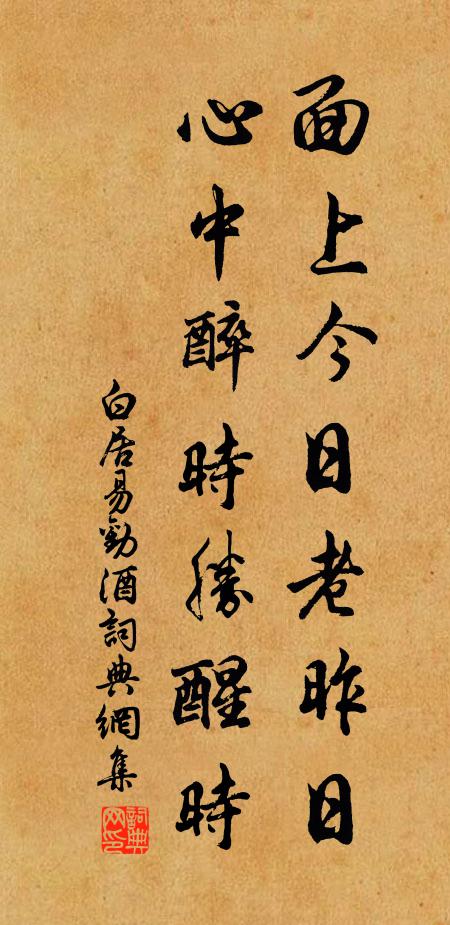 面上今日老昨日
心中醉時勝醒時
白居易勸酒詞典網集
詞典网印